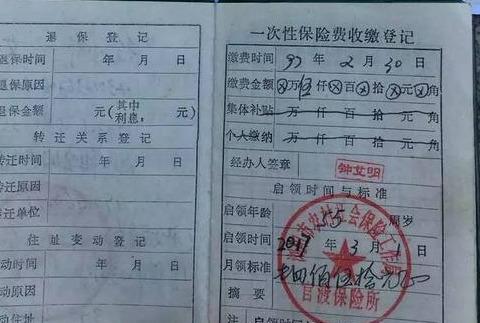 退保登记
退保时间 年 月 日
退保原因
退保金额 元(其中利息: 元)
转迁关系登记
转迁时间 年 月 日
转迁原因
转迁单位
住址变动登记
动时间 年 月 日
动原因
动住址
一次性保险费收缴登记
缴费时间 97年2月30日
缴费金额 ⊗万伍仟⊗百⊗拾⊗元⊗角
集体补贴 万仟百拾元角
个人缴纳 万仟百拾元角
经办人签章 钟艾明
启领时间与标准
启领年龄 55 周岁
2017年3月1日
月领标准
摘要
官渡保险所
注 启领时